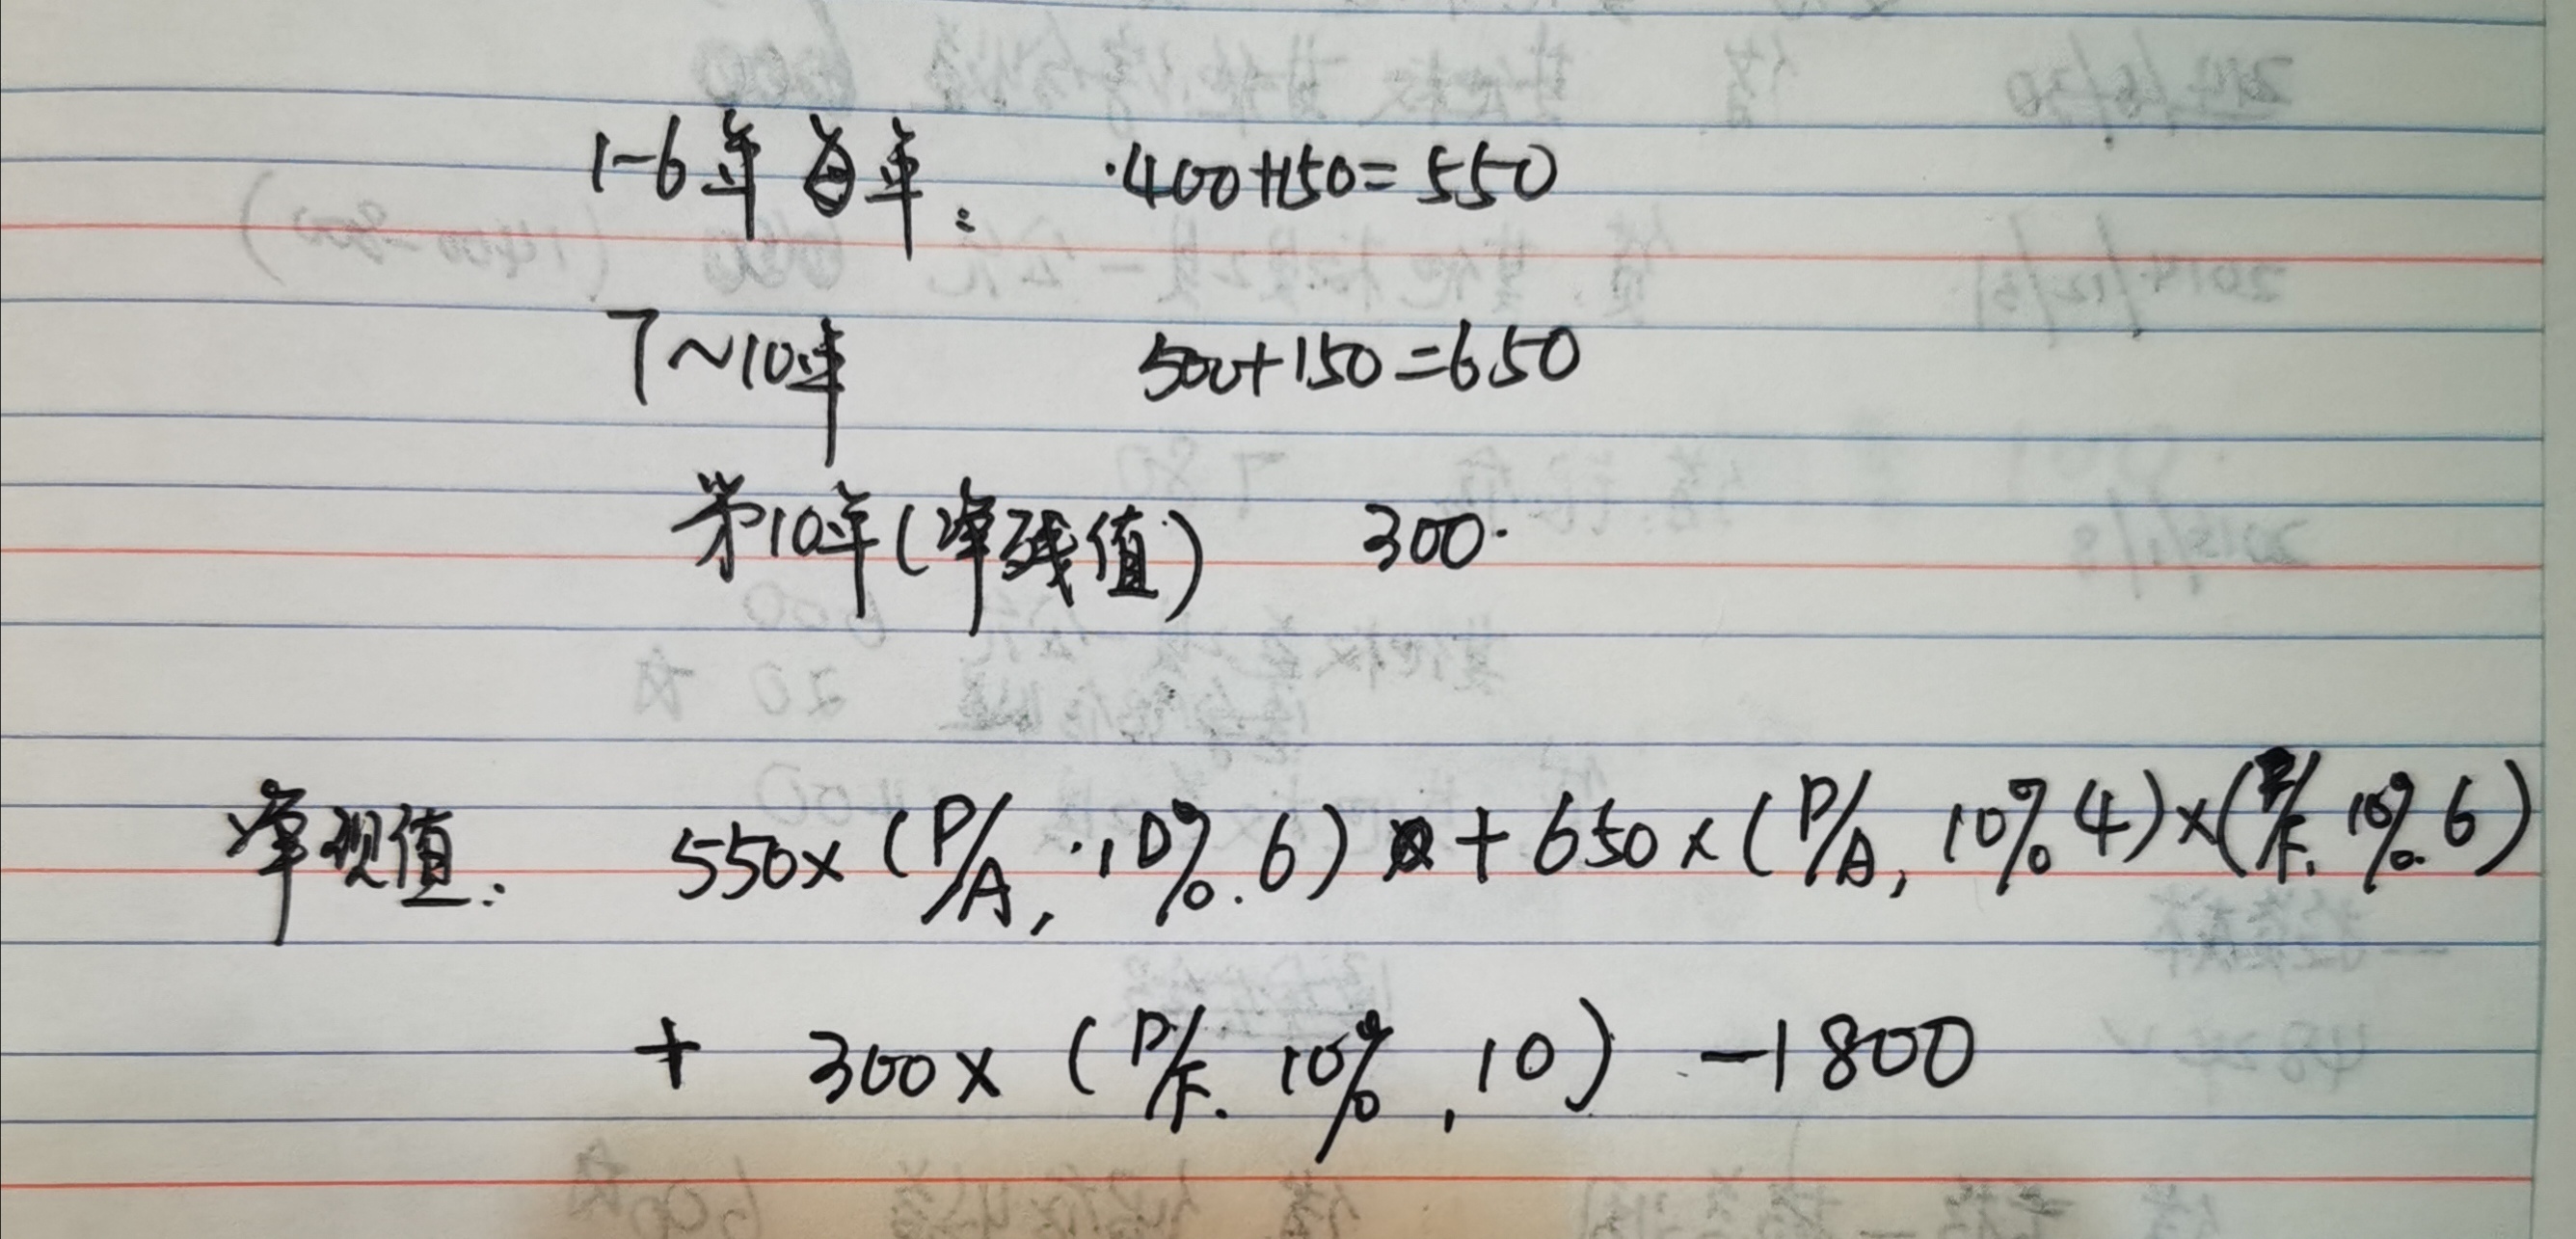 1-6年每年: 400+150=550
7~10年 500+150=650
第10年(净残值) 300.
净现值: 550×(P/A, 10%. 6) + 650×(P/A, 10% 4)×(P/F. 10%. 6)
+ 300×(P/F. 10%, 10) -1800